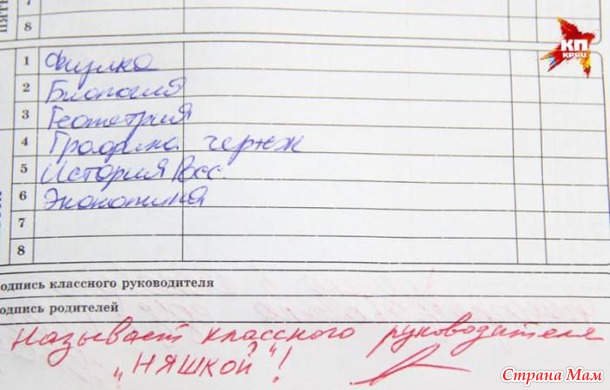 7
8
КП
KP.RU
1 Физика
2 Биология
3 Геометрия
4 Графика чертж
5 История Росс.
6 Экономика
7
8
одпись классного руководителя
одпись родителей
Называет классного руководителя
"НЯШКОЙ"!
Страна Мам